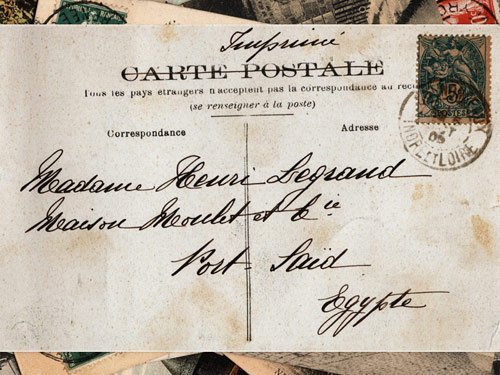 Imprimé
CARTE POSTALE
Tous les pays étrangers n'acceptent pas la correspondance au
(se renseigner à la poste)
Correspondance
Adresse
Madame Henri Legrand
Maison Moulet et Cie
Port-Saïd
Egypte
5
POSTES
05
LOIRE